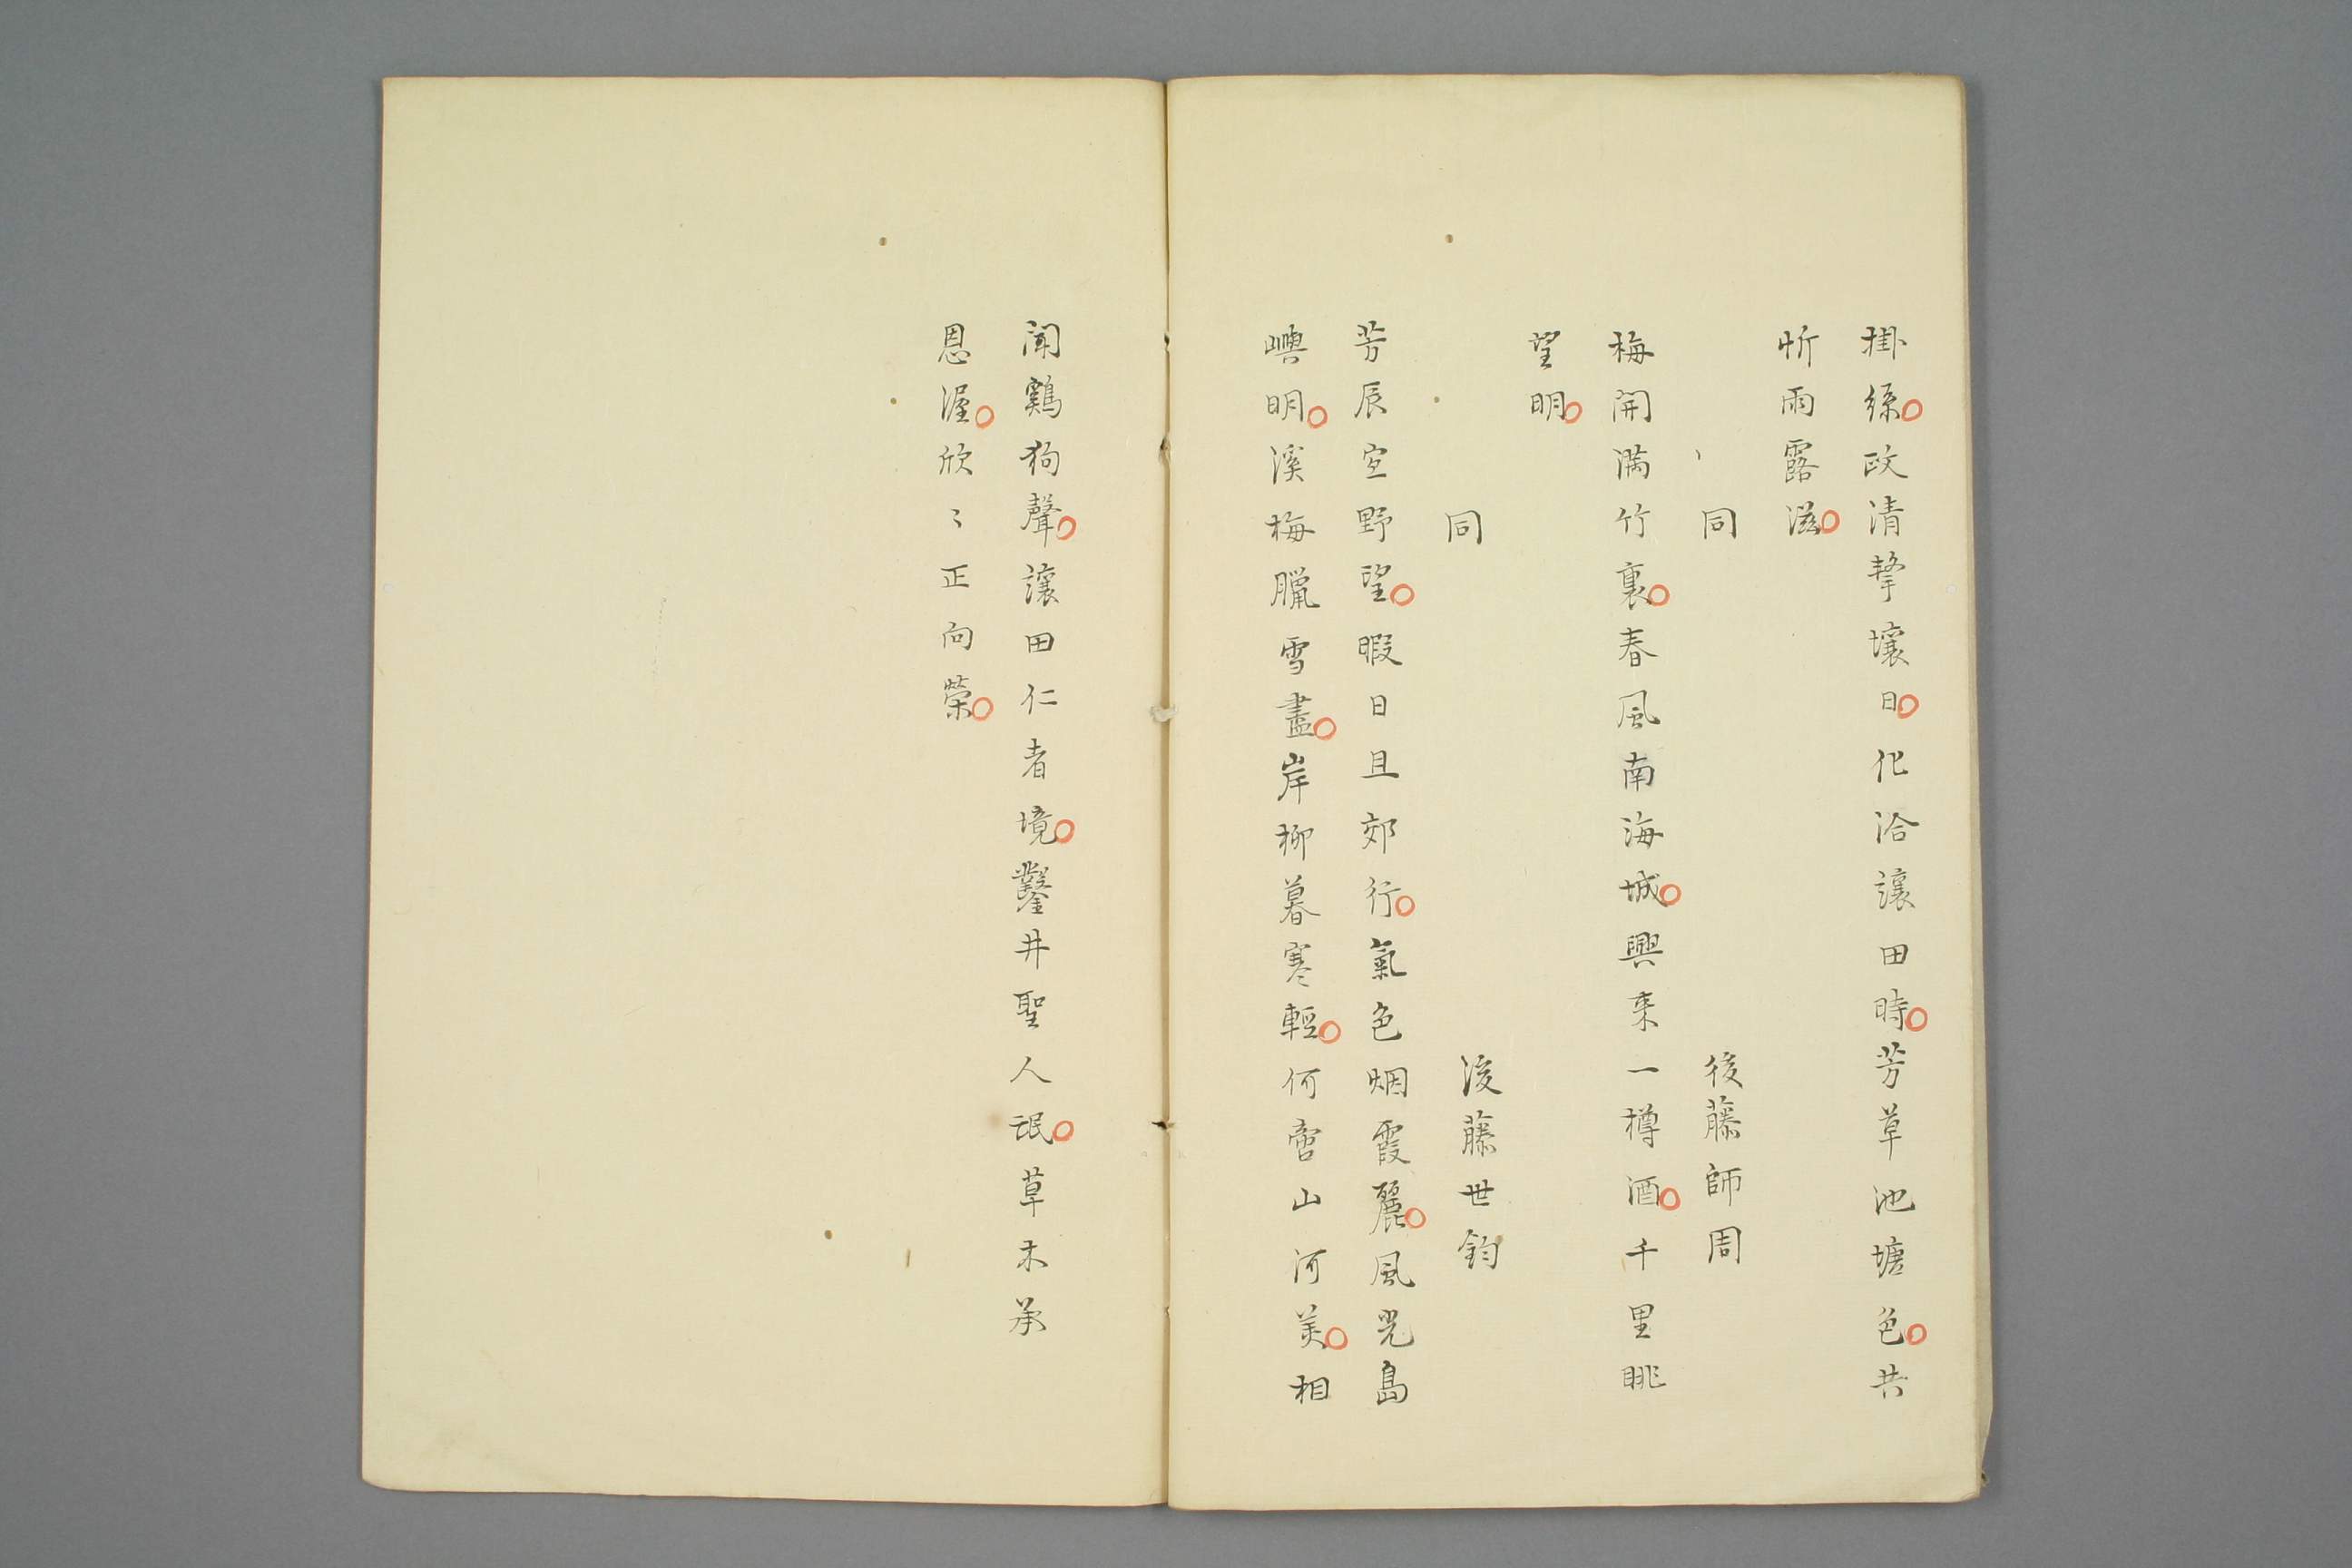 掛絲政清擊壤日化洽讓田時芳草池塘色共
忻雨露滋
同 後藤師周
梅開滿竹裏春風南海城興来一樽酒千里眺
望明
同 後藤世鈞
芳辰宜野望暇日且郊行氣色烟霞麗風光島
嶼明溪梅臘雪盡岸柳暮寒輕何啻山河美相
聞鷄狗聲讓田仁者境鑿井聖人氓草木承
恩渥欣〻正向榮